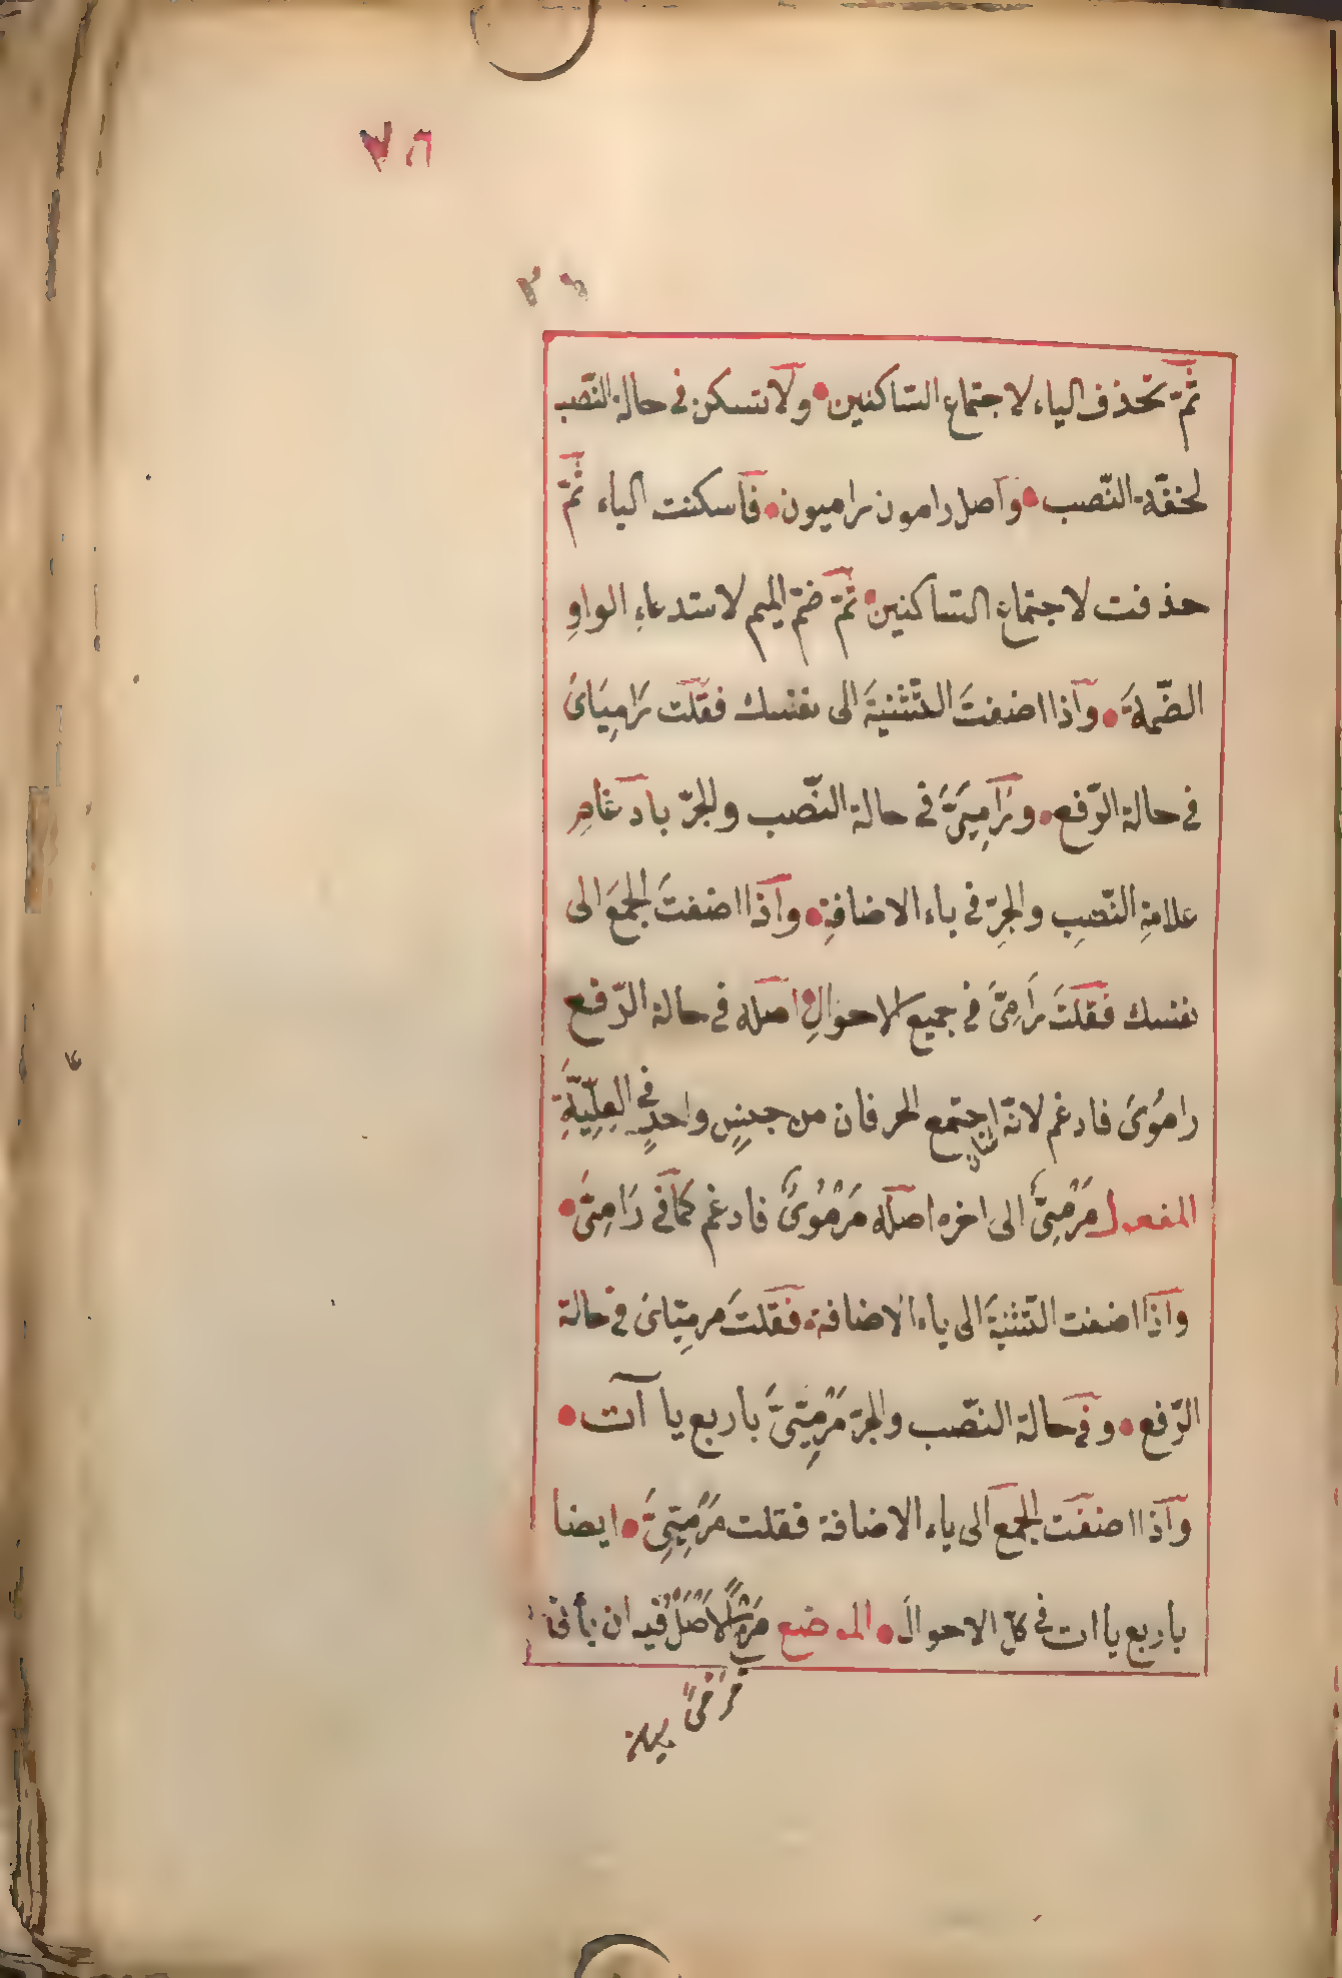 ثمّ تحذف الياء لاجتماع الساكنين ولا تسكن فى حالة النّصب
لخفّة النّصب واصل رامون راميون فاسكنت الياء ثمّ
حذفت لاجتماع الساكنين ثمّ ضمّ الميم لاستدعاءِ الواوِ
الضّمةَ واذا اضفتَ التّثنيةَ الى نفسك فقلت رَامِيَاىَ
فى حالة الرّفع ورَامِيَىَّ فى حالة النّصب والجرّ بادغامِ
علامةِ النّصبِ والجرِّ فى ياء الاضافةِ واذا اضفتَ الجمعَ الى
نفسك فقلتَ رَامِىَّ فى جميع الاحوالِ اصله فى حالة الرّفع
رامُوىَ فادغم لانّه اجتمع الحرفان من جنسٍ واحدٍ فى العِلِّيَّةِ
المفعول مَرْمِىٌّ الى اخره اصله مَرْمُوىٌ فادغم كما فى رَامِىَّ
واذا اضفت التّثنيةَ الى ياء الاضافة فقلتَ مرمِيّاىَ فى حالة
الرّفع وفى حالة النصّب والجرّ مَرْمِيَّىَّ باربع ياآت
واذا اضفت الجمع الى ياء الاضافة فقلت مَرْمِيِّىَّ ايضا
باربع ياات فى كلّ الاحوال الموضع مَرْمًى الاَصْلُ فيه ان يأتى
مَرْمىً